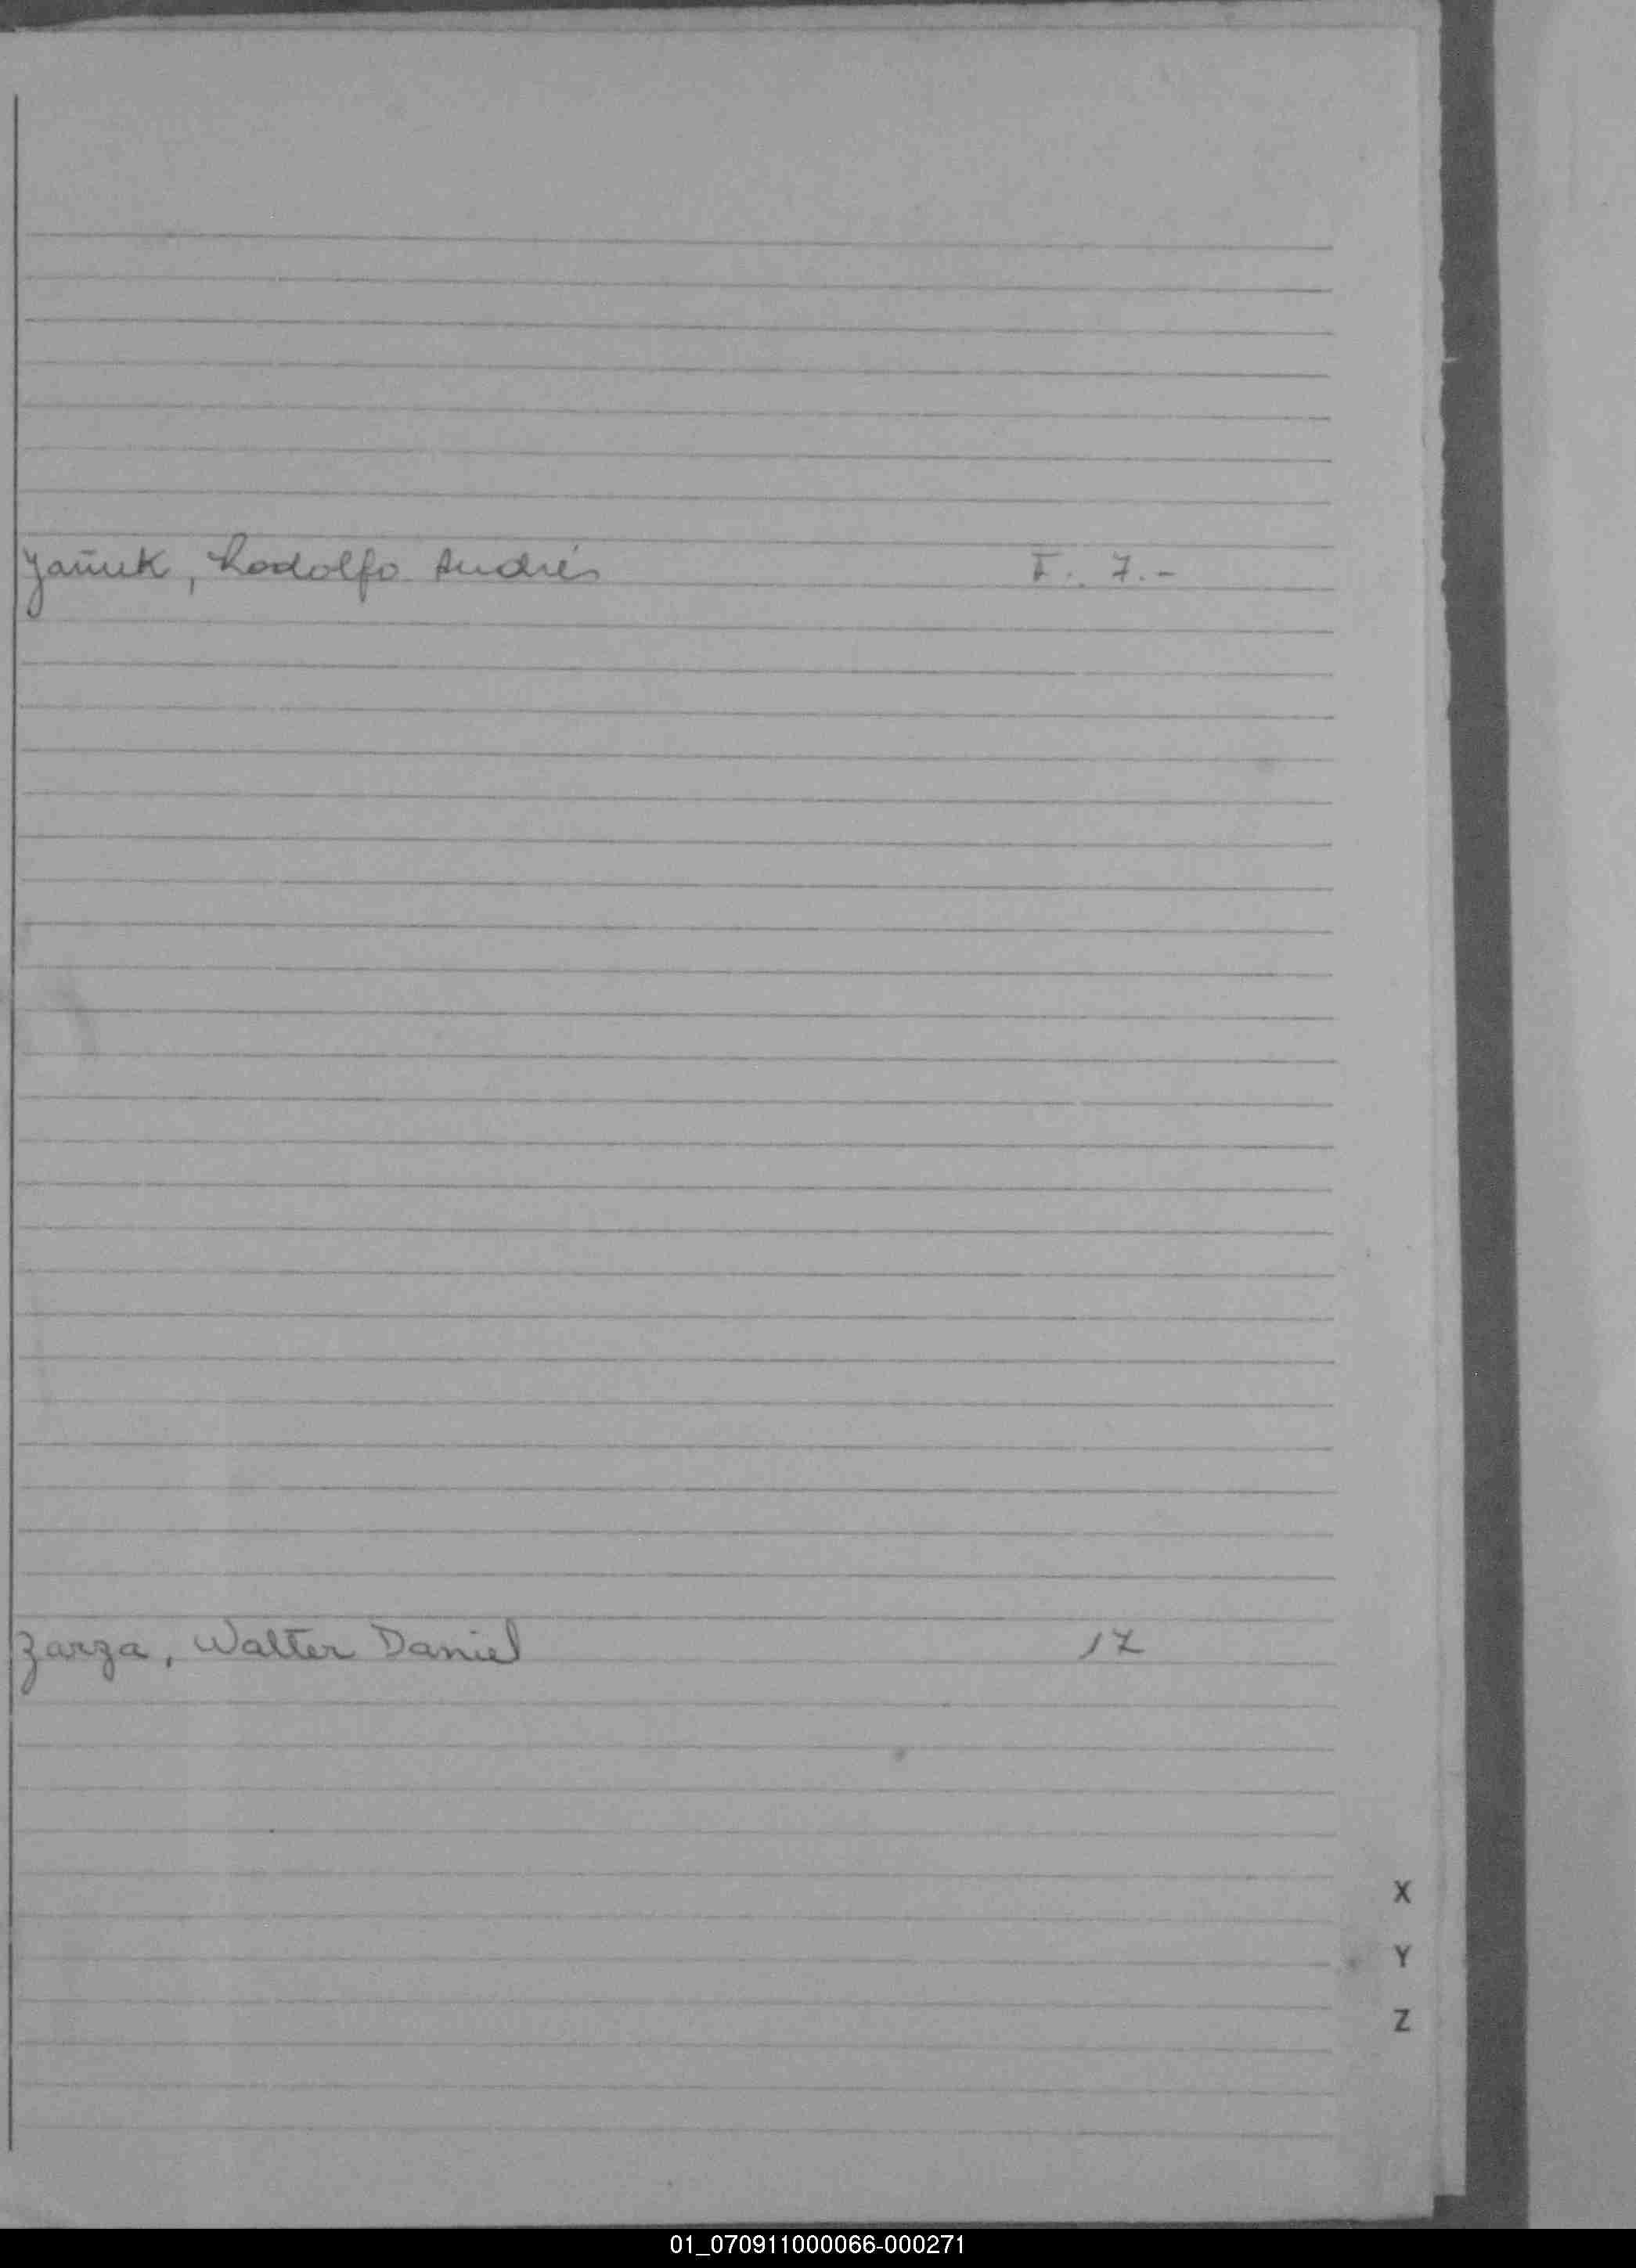 Yañuk, Rodolfo Andrés F. 7.-
Zarza, Walter Daniel 17
X
Y
Z
01_070911000066-000271